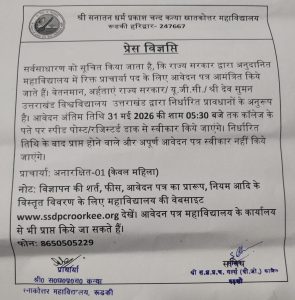 श्री सनातन धर्म प्रकाश चन्द कन्या स्नातकोत्तर महाविद्यालय
रूडकी हरिद्वार- 247667
प्रेस विज्ञप्ति
सर्वसाधारण को सूचित किया जाता है, कि राज्य सरकार द्वारा अनुदानित
महाविद्यालय में रिक्त प्राचार्या पद के लिए आवेदन पत्र आमंत्रित किये
जाते हैं। वेतनमान, अर्हताएं राज्य सरकार/ यू.जी.सी./ श्री देव सुमन
उत्तराखंड विश्वविद्यालय उत्तराखंड द्वारा निर्धारित प्रावधानों के अनुरूप
है। आवेदन अंतिम तिथि 31 मई 2026 की शाम 05:30 बजे तक कॉलेज के
पते पर स्पीड पोस्ट/रजिस्टर्ड डाक से स्वीकार किये जाएंगे। निर्धारित
तिथि के बाद प्राप्त होने वाले और अपूर्ण आवेदन पत्र स्वीकार नहीं किये
जाएंगे।
प्राचार्या: अनारक्षित-01 (केवल महिला)
नोट: विज्ञापन की शर्त, फीस, आवेदन पत्र का प्रारूप, नियम आदि के
विस्तृत विवरण के लिए महाविद्यालय की वेबसाइट
www.ssdpcroorkee.org देखें। आवेदन पत्र महाविद्यालय के कार्यालय
से भी प्राप्त किये जा सकते हैं।
फोन: 8650505229
प्राचार्या
कन्या
स्नातकोत्तर महाविद्यालय, रूडकी
सचिव
रूडकी